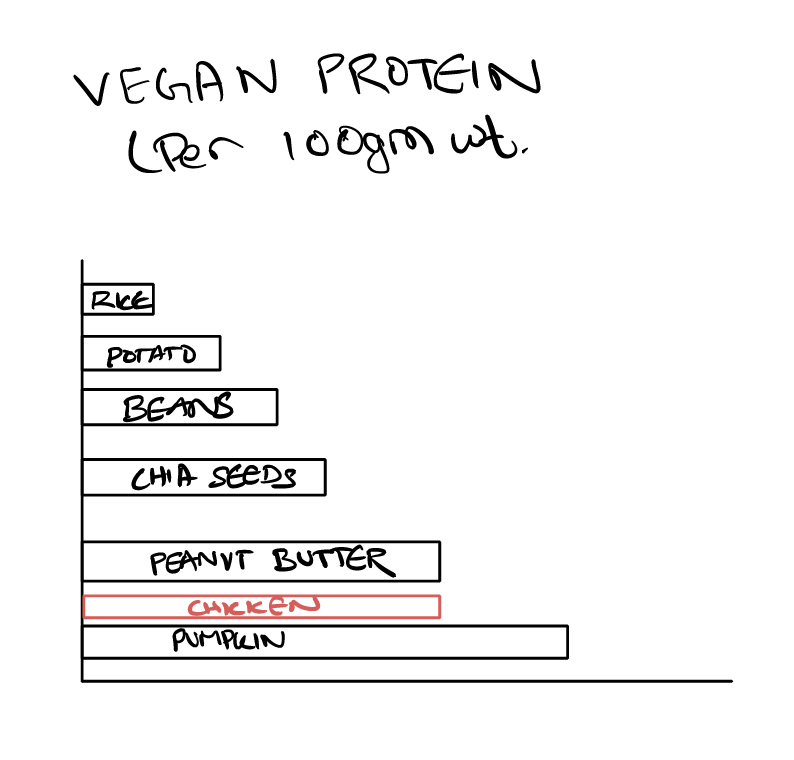 VEGAN PROTEIN
(Per 100gm wt.
RICE
POTATO
BEANS
CHIA SEEDS
PEANUT BUTTER
CHICKEN
PUMPKIN